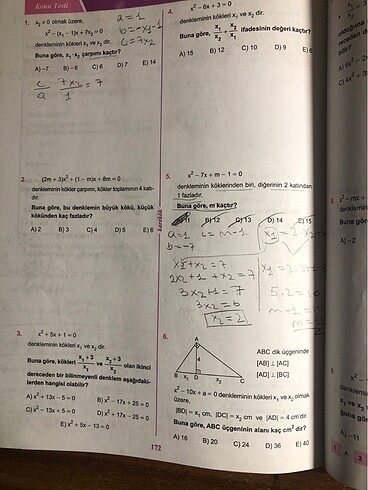 Konu Testi
1. x₂ ≠ 0 olmak üzere,
x² – (x₁ – 1)x + 7x₂ = 0
denkleminin kökleri x₁ ve x₂ dir.
Buna göre, x₁·x₂ çarpımı kaçtır?
A) –7 B) –6 C) 6 D) 7 E) 14
a = 1
b = –x₁–1
c = 7x₂
c/a 7x₂/1 = 7
2. (2m + 3)x² + (1 – m)x + 8m = 0
denkleminin kökler çarpımı, kökler toplamının 4 katıdır.
Buna göre, bu denklemin büyük kökü, küçük
kökünden kaç fazladır?
A) 2 B) 3 C) 4 D) 5 E) 6
3. x² + 5x + 1 = 0
denkleminin kökleri x₁ ve x₂ dir.
Buna göre, kökleri (x₁ + 3)/x₁ ve (x₂ + 3)/x₂ olan ikinci
dereceden bir bilinmeyenli denklem aşağıdaki-
lerden hangisi olabilir?
A) x² + 13x – 5 = 0 B) x² – 17x + 25 = 0
C) x² – 13x + 5 = 0 D) x² + 17x – 25 = 0
E) x² + 5x – 13 = 0
4.
x² – 6x + 3 = 0
denkleminin kökleri x₁ ve x₂ dir.
Buna göre, x₁/x₂ + x₂/x₁ ifadesinin değeri kaçtır?
A) 15 B) 12 C) 10 D) 9 E) 6
5.
x² – 7x + m – 1 = 0
denkleminin köklerinden biri, diğerinin 2 katından
1 fazladır.
Buna göre, m kaçtır?
B) 12 C) 13 D) 14 E) 15
a = 1 c = m – 1
b = –7
x₁ + x₂ = 7
2x₂ + 1 + x₂ = 7
3x₂ + 1 = 7
3x₂ = 6
x₂ = 2
karekök
6.
A
4
B x₁ D x₂ C
ABC dik üçgeninde
[AB] ⊥ [AC]
[AD] ⊥ [BC]
x² – 10x + a = 0 denkleminin kökleri x₁ ve x₂ olmak
üzere,
|BD| = x₁ cm, |DC| = x₂ cm ve |AD| = 4 cm'dir.
Buna göre, ABC üçgeninin alanı kaç cm² dir?
A) 16 B) 20 C) 24 D) 36 E) 40
172